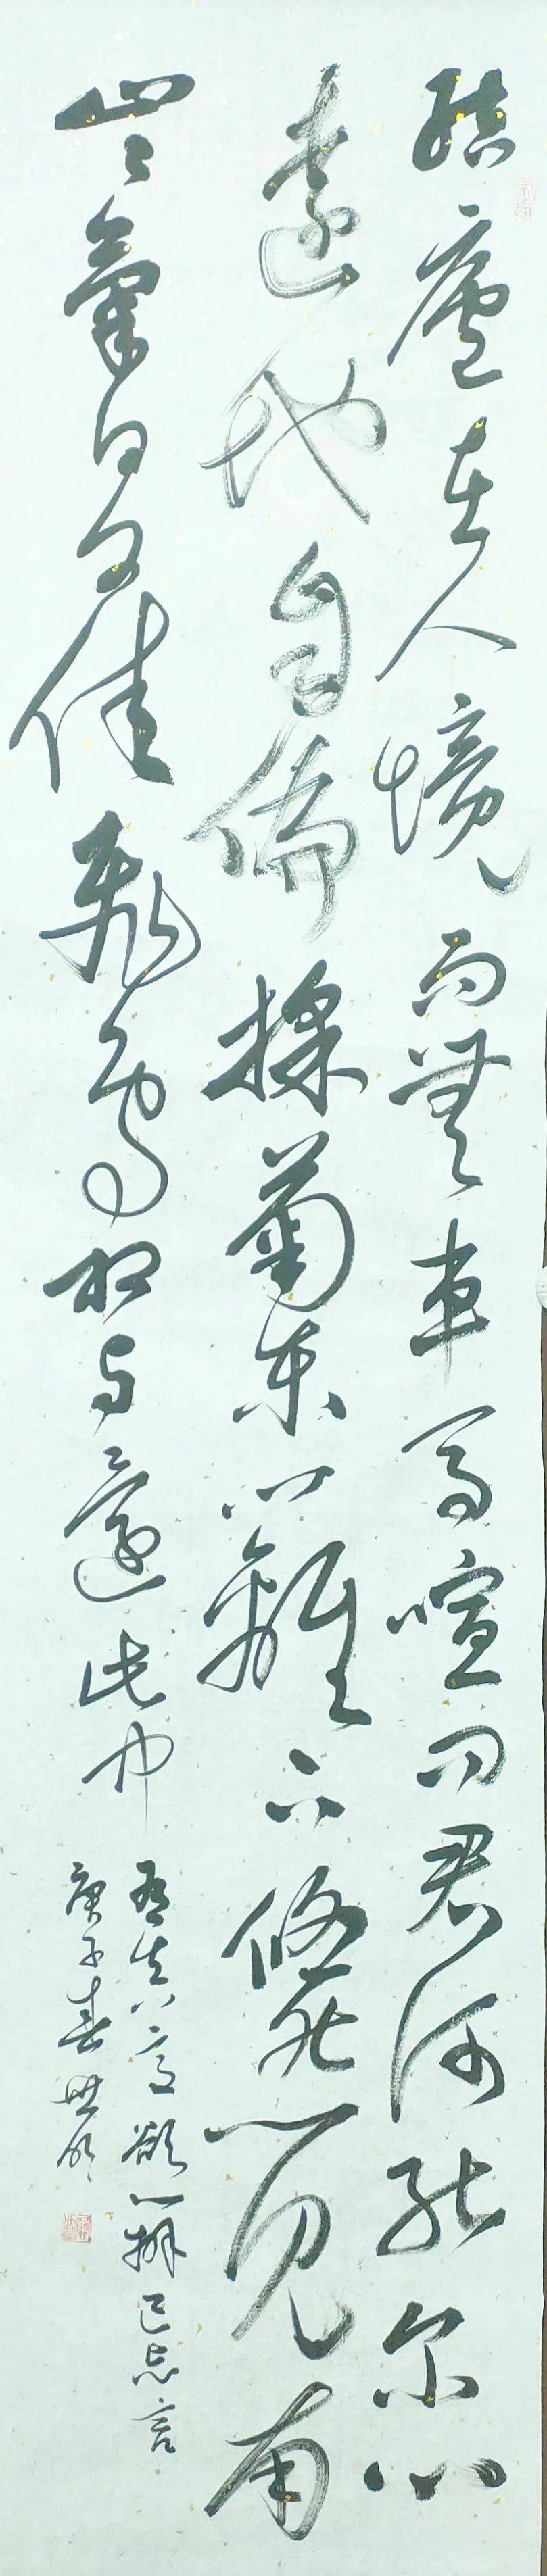 結廬在人境而無車馬喧问君何能尔心
遠地自偏採菊東籬下悠然見南
山山氣日夕佳飛鳥相与還此中
有真意欲辨已忘言
庚子春世明